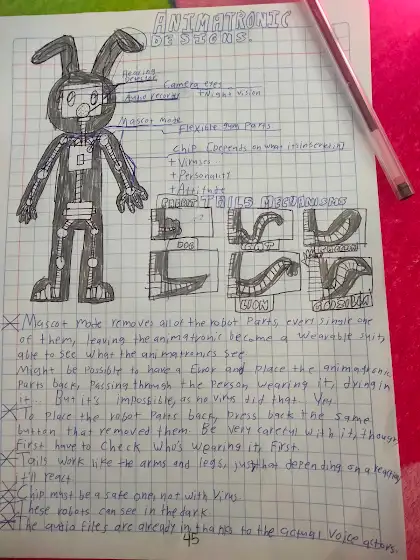 ANIMATRONIC
DESIGNS.
Hearing
Camera eyes
Audio records
+Night vision
Mascot mode
Flexible parts
Chip (Depends on what
+Viruses
+Personality
+Attitude
TAILS MECHANISMS
DOG
CAT
LION
Mascot mode removes all of the robot parts, every single one
of them, leaving the animatronic become a wearable suit,
able to see what the animatronics see
Might be possible to have a Error and place the animatronic
parts back, passing through the person wearing it,
it... But it's impossible, as no virus did that. Yet.
To place the robot parts back, press back the same
button that removed them. Be very careful with it, though,
First have to check who's wearing it, first
Tails work like the arms and legs, just that depending on a reaction
it'll react
Chip must be a safe one, not with virus
These robots can see in the dark
The audio files are already in thanks to the actual voice actors
45